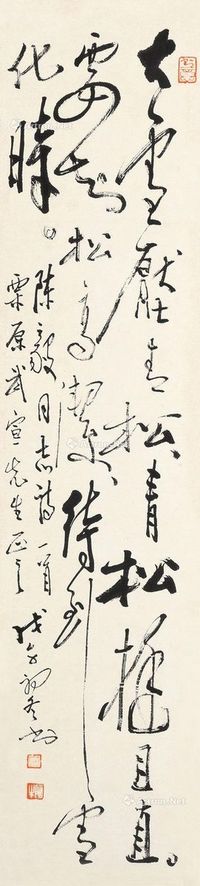 大雪壓青松青松挺且直。
要知松高潔待到雪
化時。
陳毅同志詩一首
栗原武宣先生正之
戊午初冬